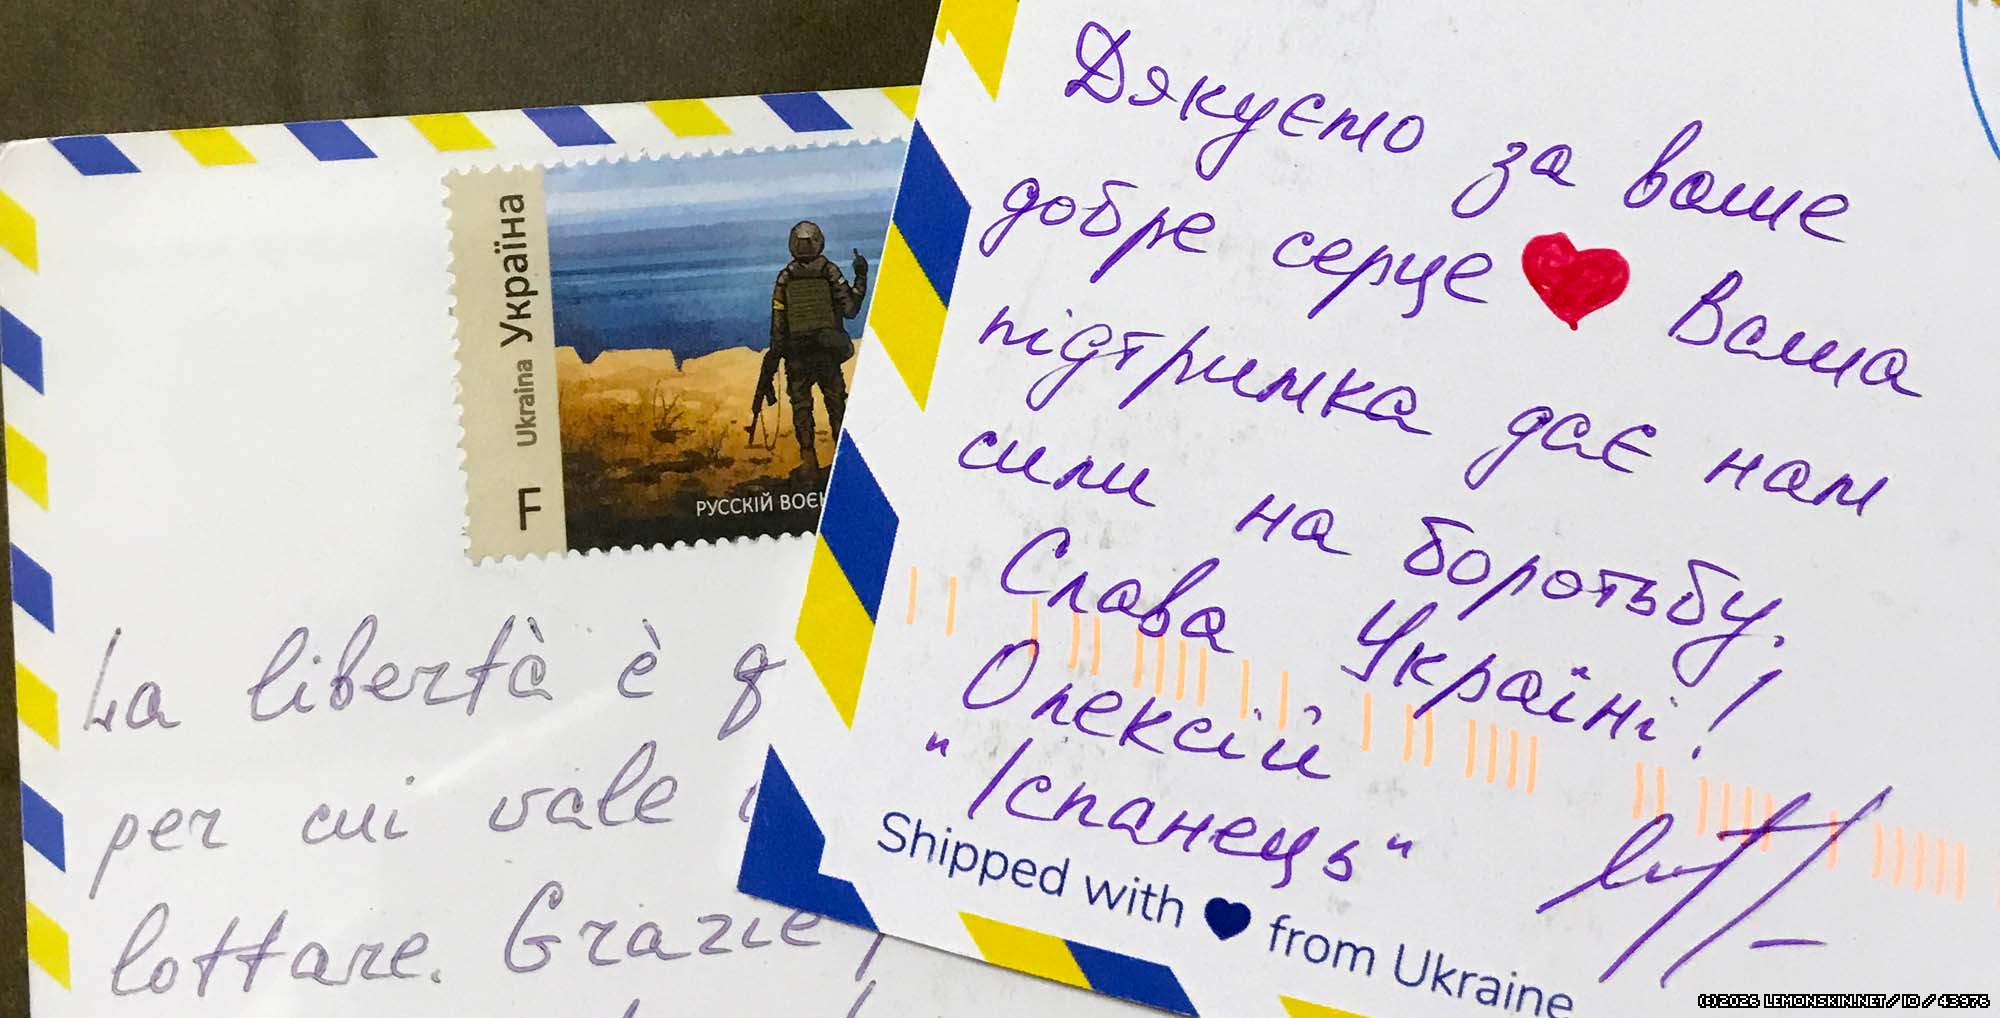 Ukraina Україна
F
РУССКІЙ ВОЄН
La libertà è q
per cui vale
lottare. Grazie,
Дякуємо за ваше
добре серце ❤ Ваша
підтримка дає нам
сили на боротьбу.
Слава Україні!
Олексій
"Іспанець"
Shipped with ♥ from Ukraine
(C)2026 LEMONSKIN.NET/IO/43376